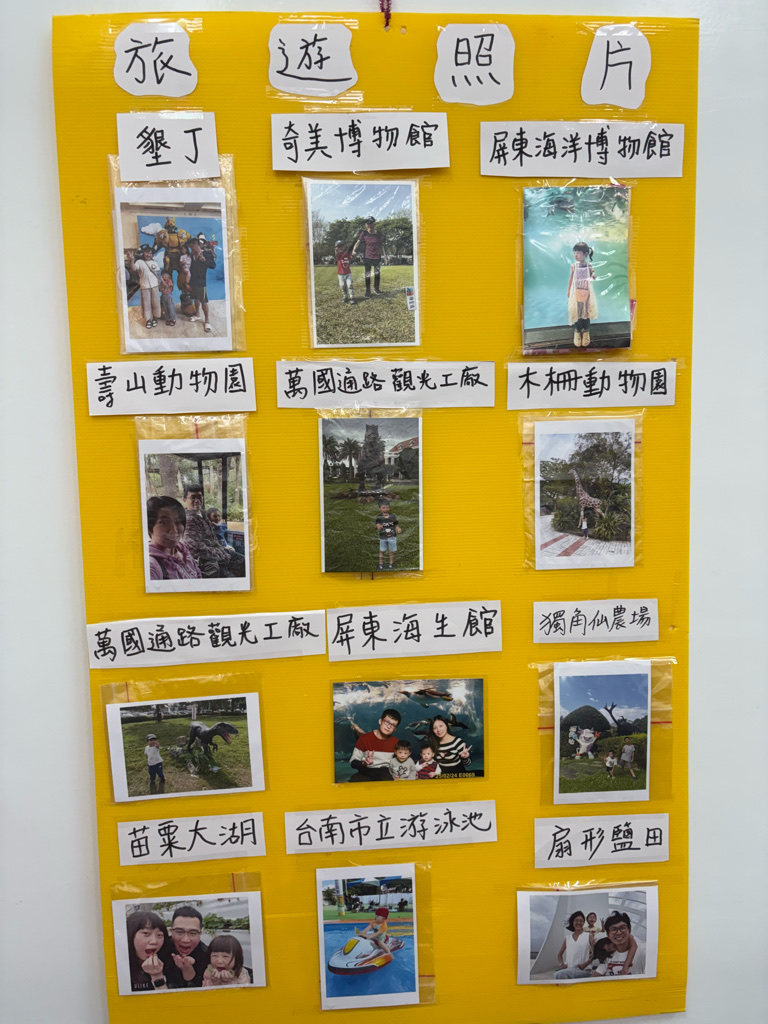 旅遊照片
墾丁
奇美博物館
屏東海洋博物館
壽山動物園
萬國通路觀光工廠
木柵動物園
萬國通路觀光工廠
屏東海生館
獨角仙農場
苗栗大湖
台南市立游泳池
扇形鹽田